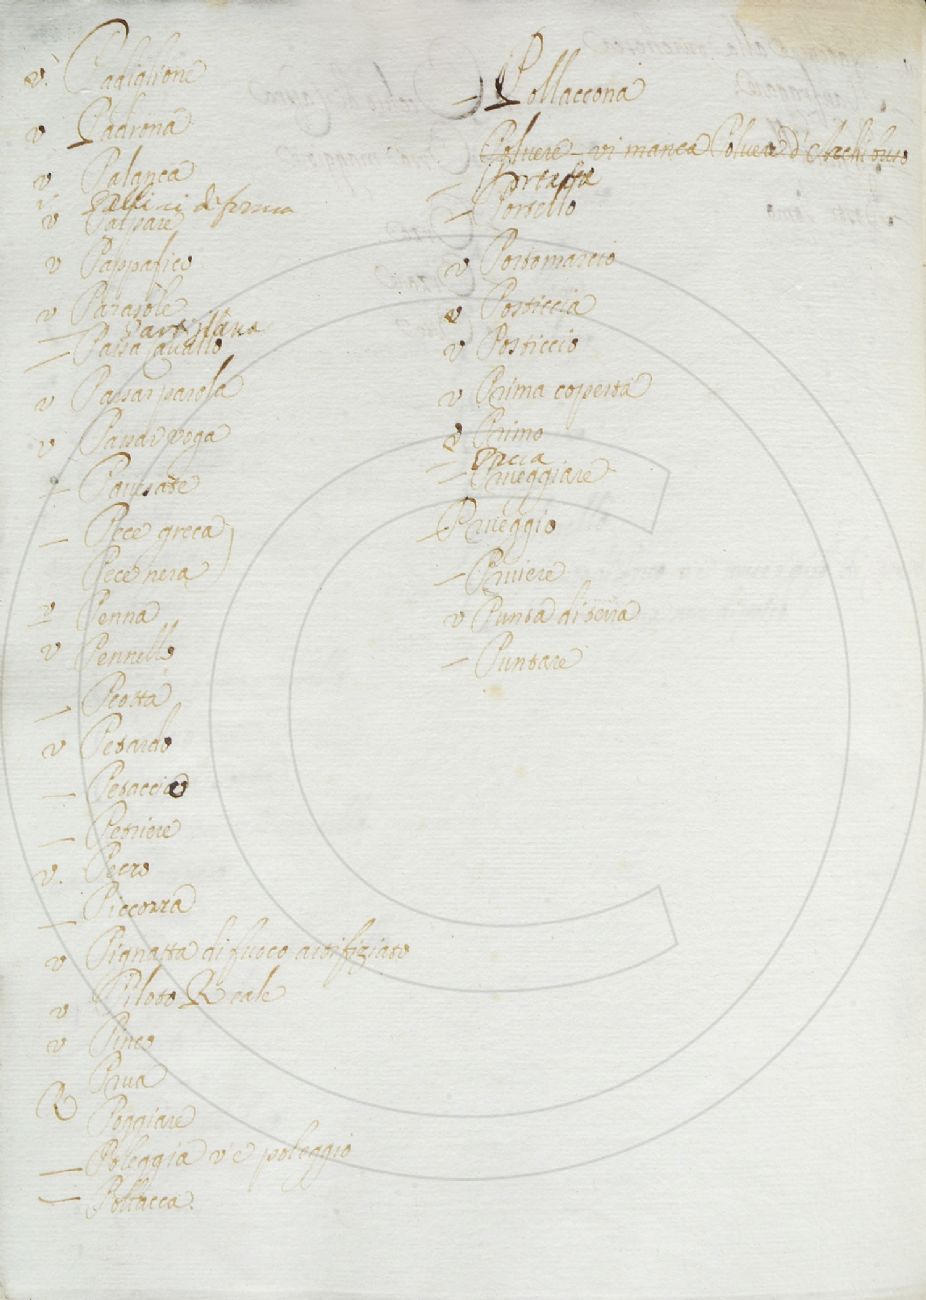 v. Padiglione
v Padrona
v Palanca
v Pallini di ferro
v Palpare
v Pappafico
v Parasole
— Partigiana
— Passa Cavallo
v Passar parola
v Passar voga
— Pavesate
— Pece greca
Pece nera
v Penna
v Pennello
— Peotta
v Petardo
— Petaccio
— Petriere
v. Pezzo
— Piccozza
v Pignatta di fuoco artifiziato
v Piloto Reale
v Pino
Piva
R Poggiare
— Poleggia v'è poleggio
— Pollacca.
— Pollaccona
Polvere – vi manca Polvere d'Archibuso
— Portassa
— Portello
v Portomarcio
v Posticcia
v Posticcio
v Prima coperta
v Primo
— Procia
— Prueggiare
— Prueggio
— Pruiere
v Punta di terra
— Puntare